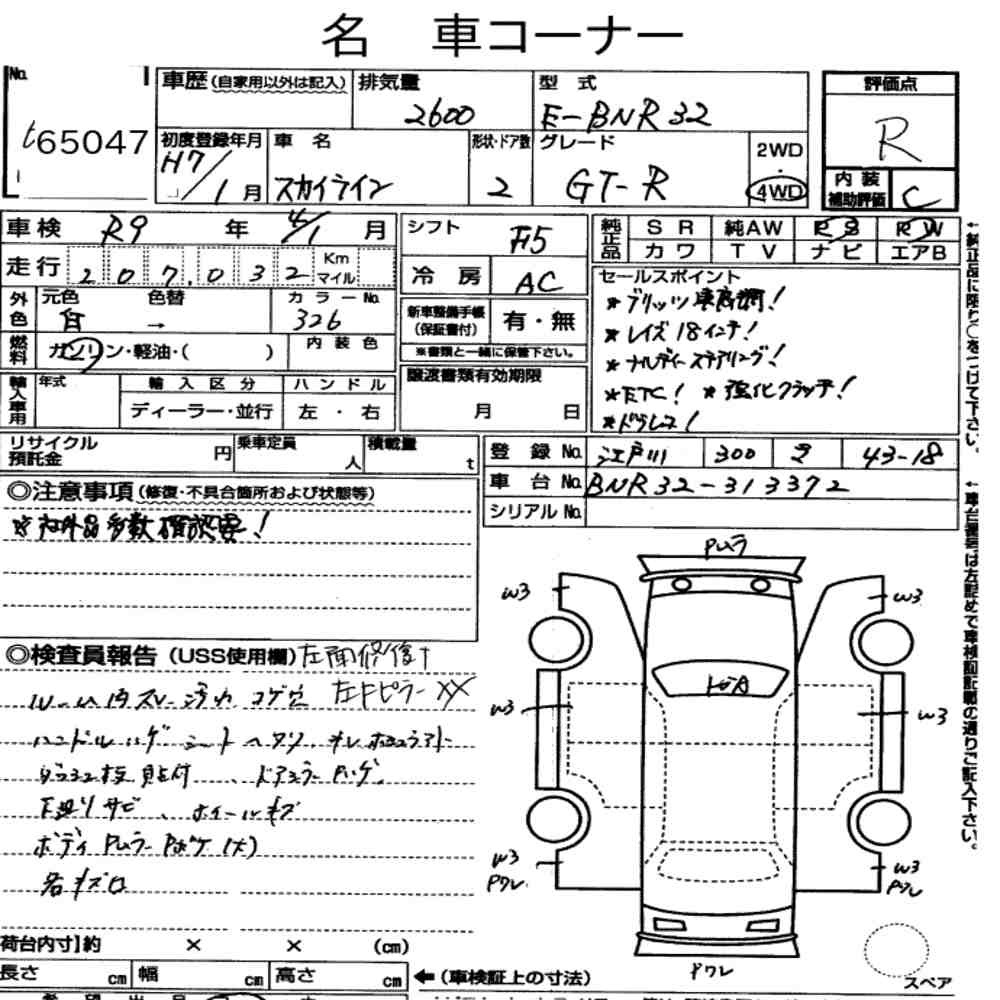 名 車コーナー
No. 車歴 (自家用以外は記入) 排気量 型式 評価点
65047 2600 E-BNR32 R
初度登録年月 車名 形状・ドア数 グレード 2WD
H7/1月 スカイライン 2 GT-R ・4WD
内装補助評価 C
車検 R9 年 4/1 月 シフト F5 純正品 SR 純AW PS PW
カワ TV ナビ エアB
走行 207,032 Km マイル 冷房 AC
外色 元色 色替 カラーNo.
白 → 326
新車整備手帳 (保証書付) 有・無
※書類と一緒に保管下さい。
セールスポイント
★ブリッツ車高調!
★レイズ18インチ!
★ナルディーステアリング!
★ETC! ★強化クラッチ!
★ドラレコ!
燃料 ガソリン・軽油・( ) 内装色
輸入車用 年式 輸入区分 ハンドル
ディーラー・並行 左・右
譲渡書類有効期限
月 日
リサイクル預託金 円 乗車定員 人 積載量 t
登録No. 江戸川 300 43-18
車台No. BNR32-313372
シリアルNo.
◎注意事項 (修復・不具合箇所および状態等)
★社外品多数確認要!
◎検査員報告 (USS使用欄) 左面修復
ルーム内スレ 汚れ コゲ穴 左Fピラー XX
ハンドルハゲ シートヘタリ
貼付、ドアミラーハゲ
下廻りサビ、ホイールキズ
ボディPムラ Pボケ(大)
各キズ凹
Pムラ
W3 W3
W3 W3
W3 Pワレ W3 Pワレ
Pワレ
スペア
荷台内寸】約 × × (cm)
長さ cm 幅 cm 高さ cm ←(車検証上の寸法)
←純正品に限り○をつけて下さい。
←車台番号は左詰めで車検証記載の通りご記入下さい。